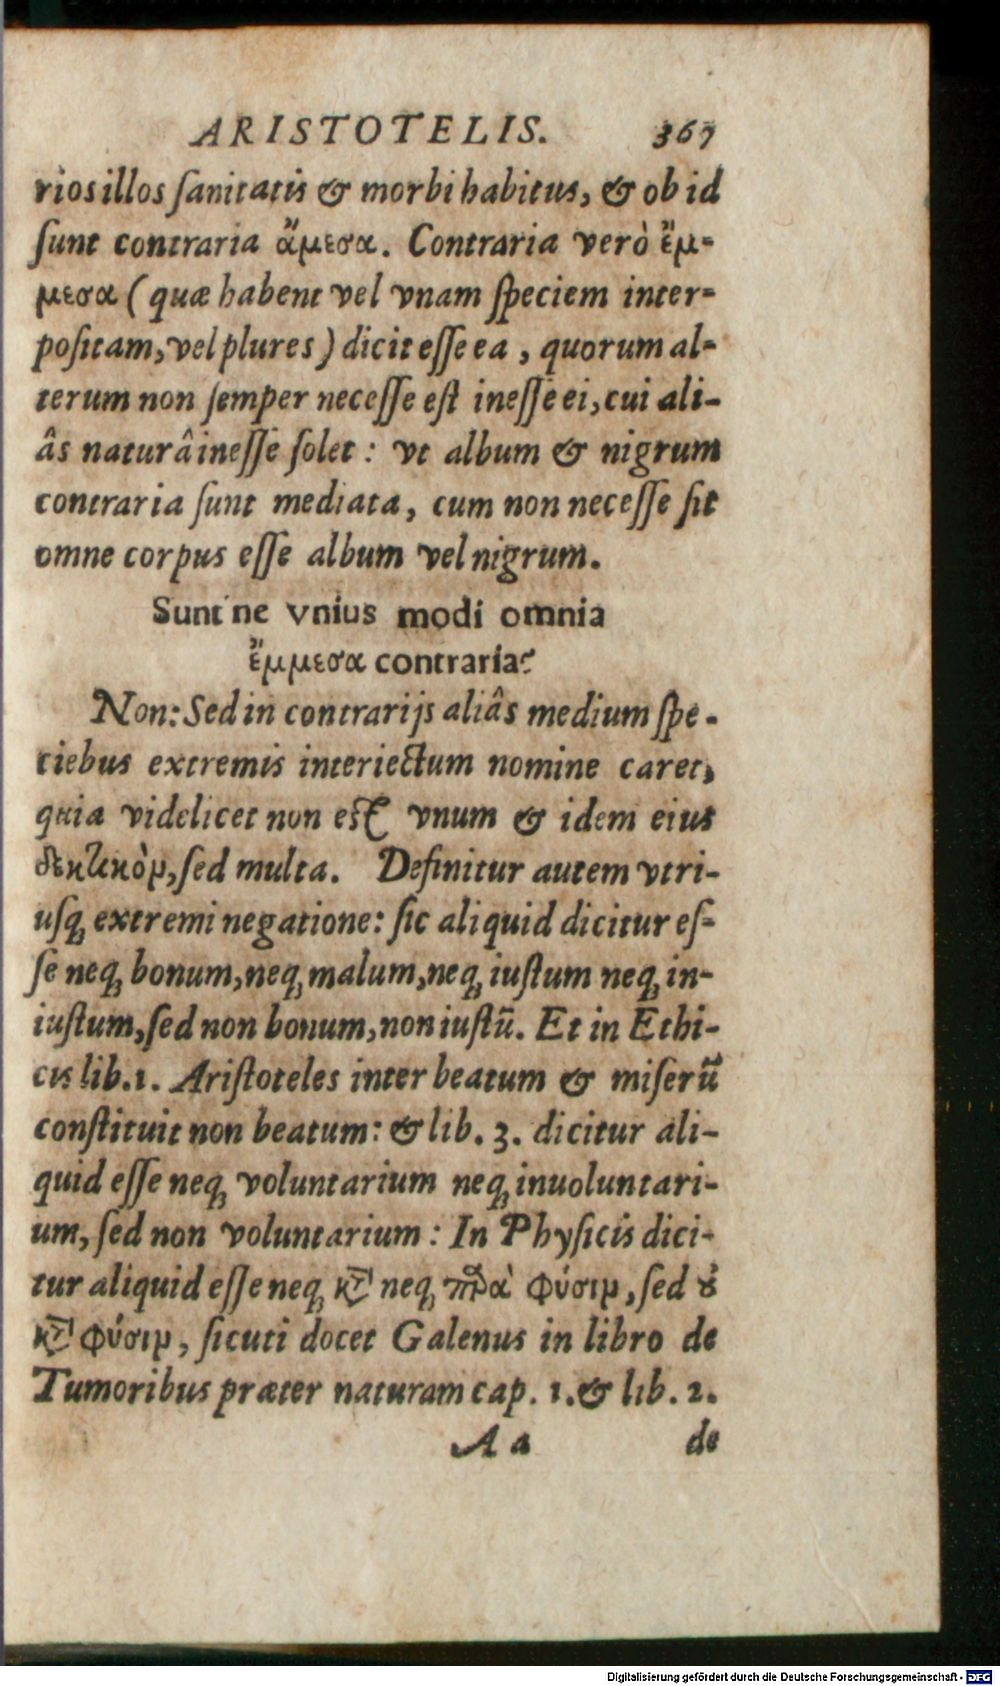 ARISTOTELIS. 367
rios illos ſanitatis & morbi habitus, & ob id
ſunt contraria ἄμεσα. Contraria verò ἔμ-
μεσα (quæ habent vel vnam ſpeciem inter-
poſitam, vel plures) dicit eſſe ea, quorum al-
terum non ſemper neceſſe eſt ineſſe ei, cui ali-
âs naturâ ineſſe ſolet: vt album & nigrum
contraria ſunt mediata, cum non neceſſe ſit
omne corpus eſſe album vel nigrum.
Sunt ne vnius modi omnia
ἔμμεσα contraria?
Non: Sed in contrarijs aliâs medium ſpe-
ciebus extremis interiectum nomine caret,
quia videlicet non eſt vnum & idem eius
δεκτικὸν, ſed multa. Definitur autem vtri-
uſq; extremi negatione: ſic aliquid dicitur eſ-
ſe neq; bonum, neq; malum, neq; iuſtum neq; in-
iuſtum, ſed non bonum, non iuſtū. Et in Ethi-
cis lib. 1. Ariſtoteles inter beatum & miſerū
conſtituit non beatum: & lib. 3. dicitur ali-
quid eſſe neq; voluntarium neq; inuoluntari-
um, ſed non voluntarium: In Phyſicis dici-
tur aliquid eſſe neq; κτ̀ neq; παρὰ φύσιν, ſed ȣ
κτ̀ φύσιν, ſicuti docet Galenus in libro de
Tumoribus præter naturam cap. 1. & lib. 2.
A a de
Digitalisierung gefördert durch die Deutsche Forschungsgemeinschaft - DFG